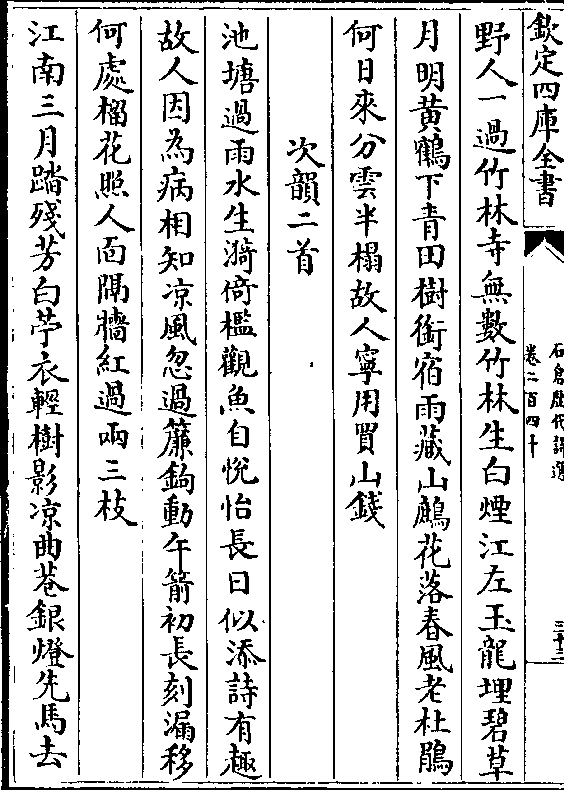 欽定四庫全書
石倉歷代詩選
卷二百四十
三十三
野人一過竹林寺無數竹林生白煙江左玉龍埋碧草
月明黄鶴下青田樹銜宿雨藏山鷓花落春風老杜鵑
何日來分雲半榻故人寧用買山錢
次韻二首
池塘過雨水生漪倚檻觀魚自悅怡長日似添詩有趣
故人因為病相知凉風忽過簾鉤動午箭初長刻漏移
何處榴花照人面隔牆紅過兩三枝
江南三月踏殘芳白苧衣輕樹影凉曲巷銀燈先馬去